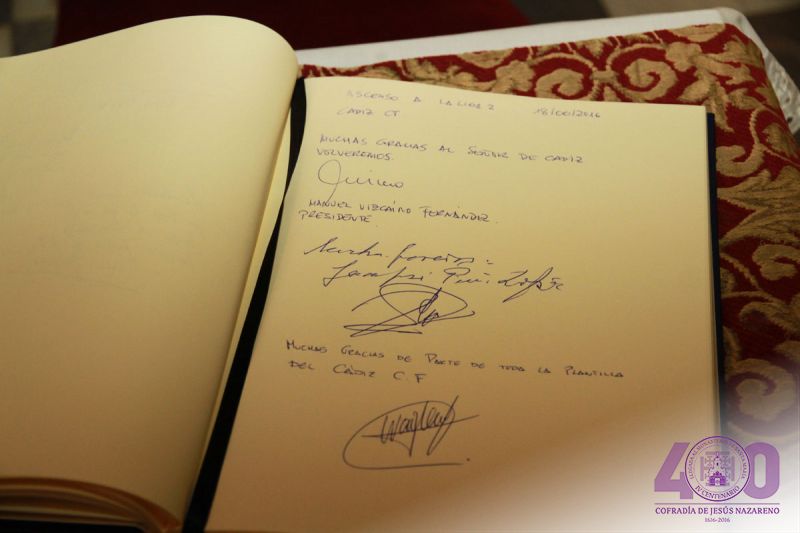 ASCENSO A LA LIGA 2 18/06/2016
CADIZ CF
MUCHAS GRACIAS AL SEÑOR DE CADIZ
VOLVEREMOS.
MANUEL VIZCAÍNO FERNÁNDEZ.
PRESIDENTE.
MUCHAS GRACIAS DE PARTE DE TODA LA PLANTILLA
DEL CÁDIZ C.F
400
IV CENTENARIO
COFRADÍA DE JESÚS NAZARENO
1616-2016